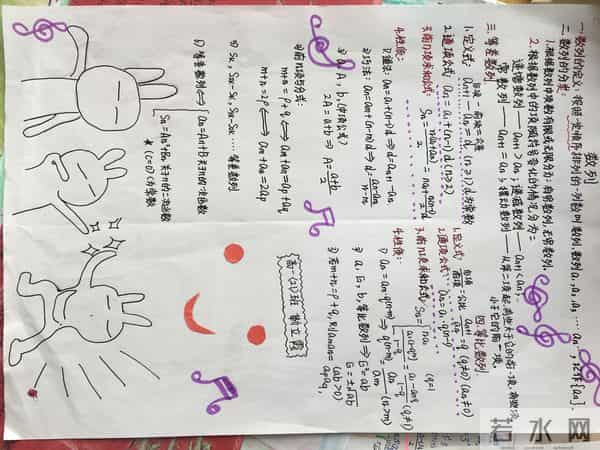 数列
一. 数列的定义: 按照一定顺序排列的一列数叫数列, 数列a₁, a₂, a₃, … aₙ, 记作{aₙ}.
二. 数列的分类:
1. 根据数列中项数有限或无限分为: 有穷数列, 无穷数列.
2. 根据数列中的项随符号变化的情况分为:
递增数列 —— aₙ₊₁ > aₙ, 递减数列 —— aₙ₊₁ < aₙ
常数列 —— aₙ₊₁ = aₙ, 摆动数列 —— 从第二项起, 有些大于它的前一项, 有些项
小于它的前一项.
三. 等差数列
1. 定义式: aₙ₊₁ - aₙ = d. (n≥1) d为常数
2. 通项公式: aₙ = a₁ + (n-1)d (n≥2)
3. 前n项求和公式: Sₙ =
4. 性质:
1) 通法: aₙ = a₁ + (n-1)d ⇒
2) 巧法: aₙ = aₘ + (n-m)d ⇒ d = (aₙ - aₘ)/(n-m)
3) a, A, b, (中项公式)
2A = a+b ⇒ A = (a+b)/2
4) 前n项与分式:
m+n = p+q ⟺ aₘ + aₙ = aₚ + a_q
m+n = 2p ⟺ aₘ + aₙ = 2aₚ
5) Sₙ, S₂ₙ - Sₙ, S₃ₙ - S₂ₙ …… 等差数列
6) 等差数列 ⟺ aₙ = An+B 关于n的一次函数
Sₙ = An² + Bn 关于n的二次函数
(C=0) C为常数
四. 等比数列.
1. 定义式: aₙ₊₁/aₙ = q (q≠0) (aₙ≠0)
2. 通项公式: aₙ = a₁·qⁿ⁻¹
3. 前n项求和公式: Sₙ = na₁ (q=1)
a₁(1-qⁿ)/(1-q) = (a₁-aₙq)/(1-q) (q≠1)
4. 性质:
1) aₙ = aₘ·q^(n-m) ⇒ q^(n-m) = aₙ/aₘ (n>m)
2) a, G, b, 等比数列 ⇒ G² = ab
G = ±√ab
(ab>0)
3) 若m+n = p+q, 则aₘaₙ = aₚa_q,
若水网